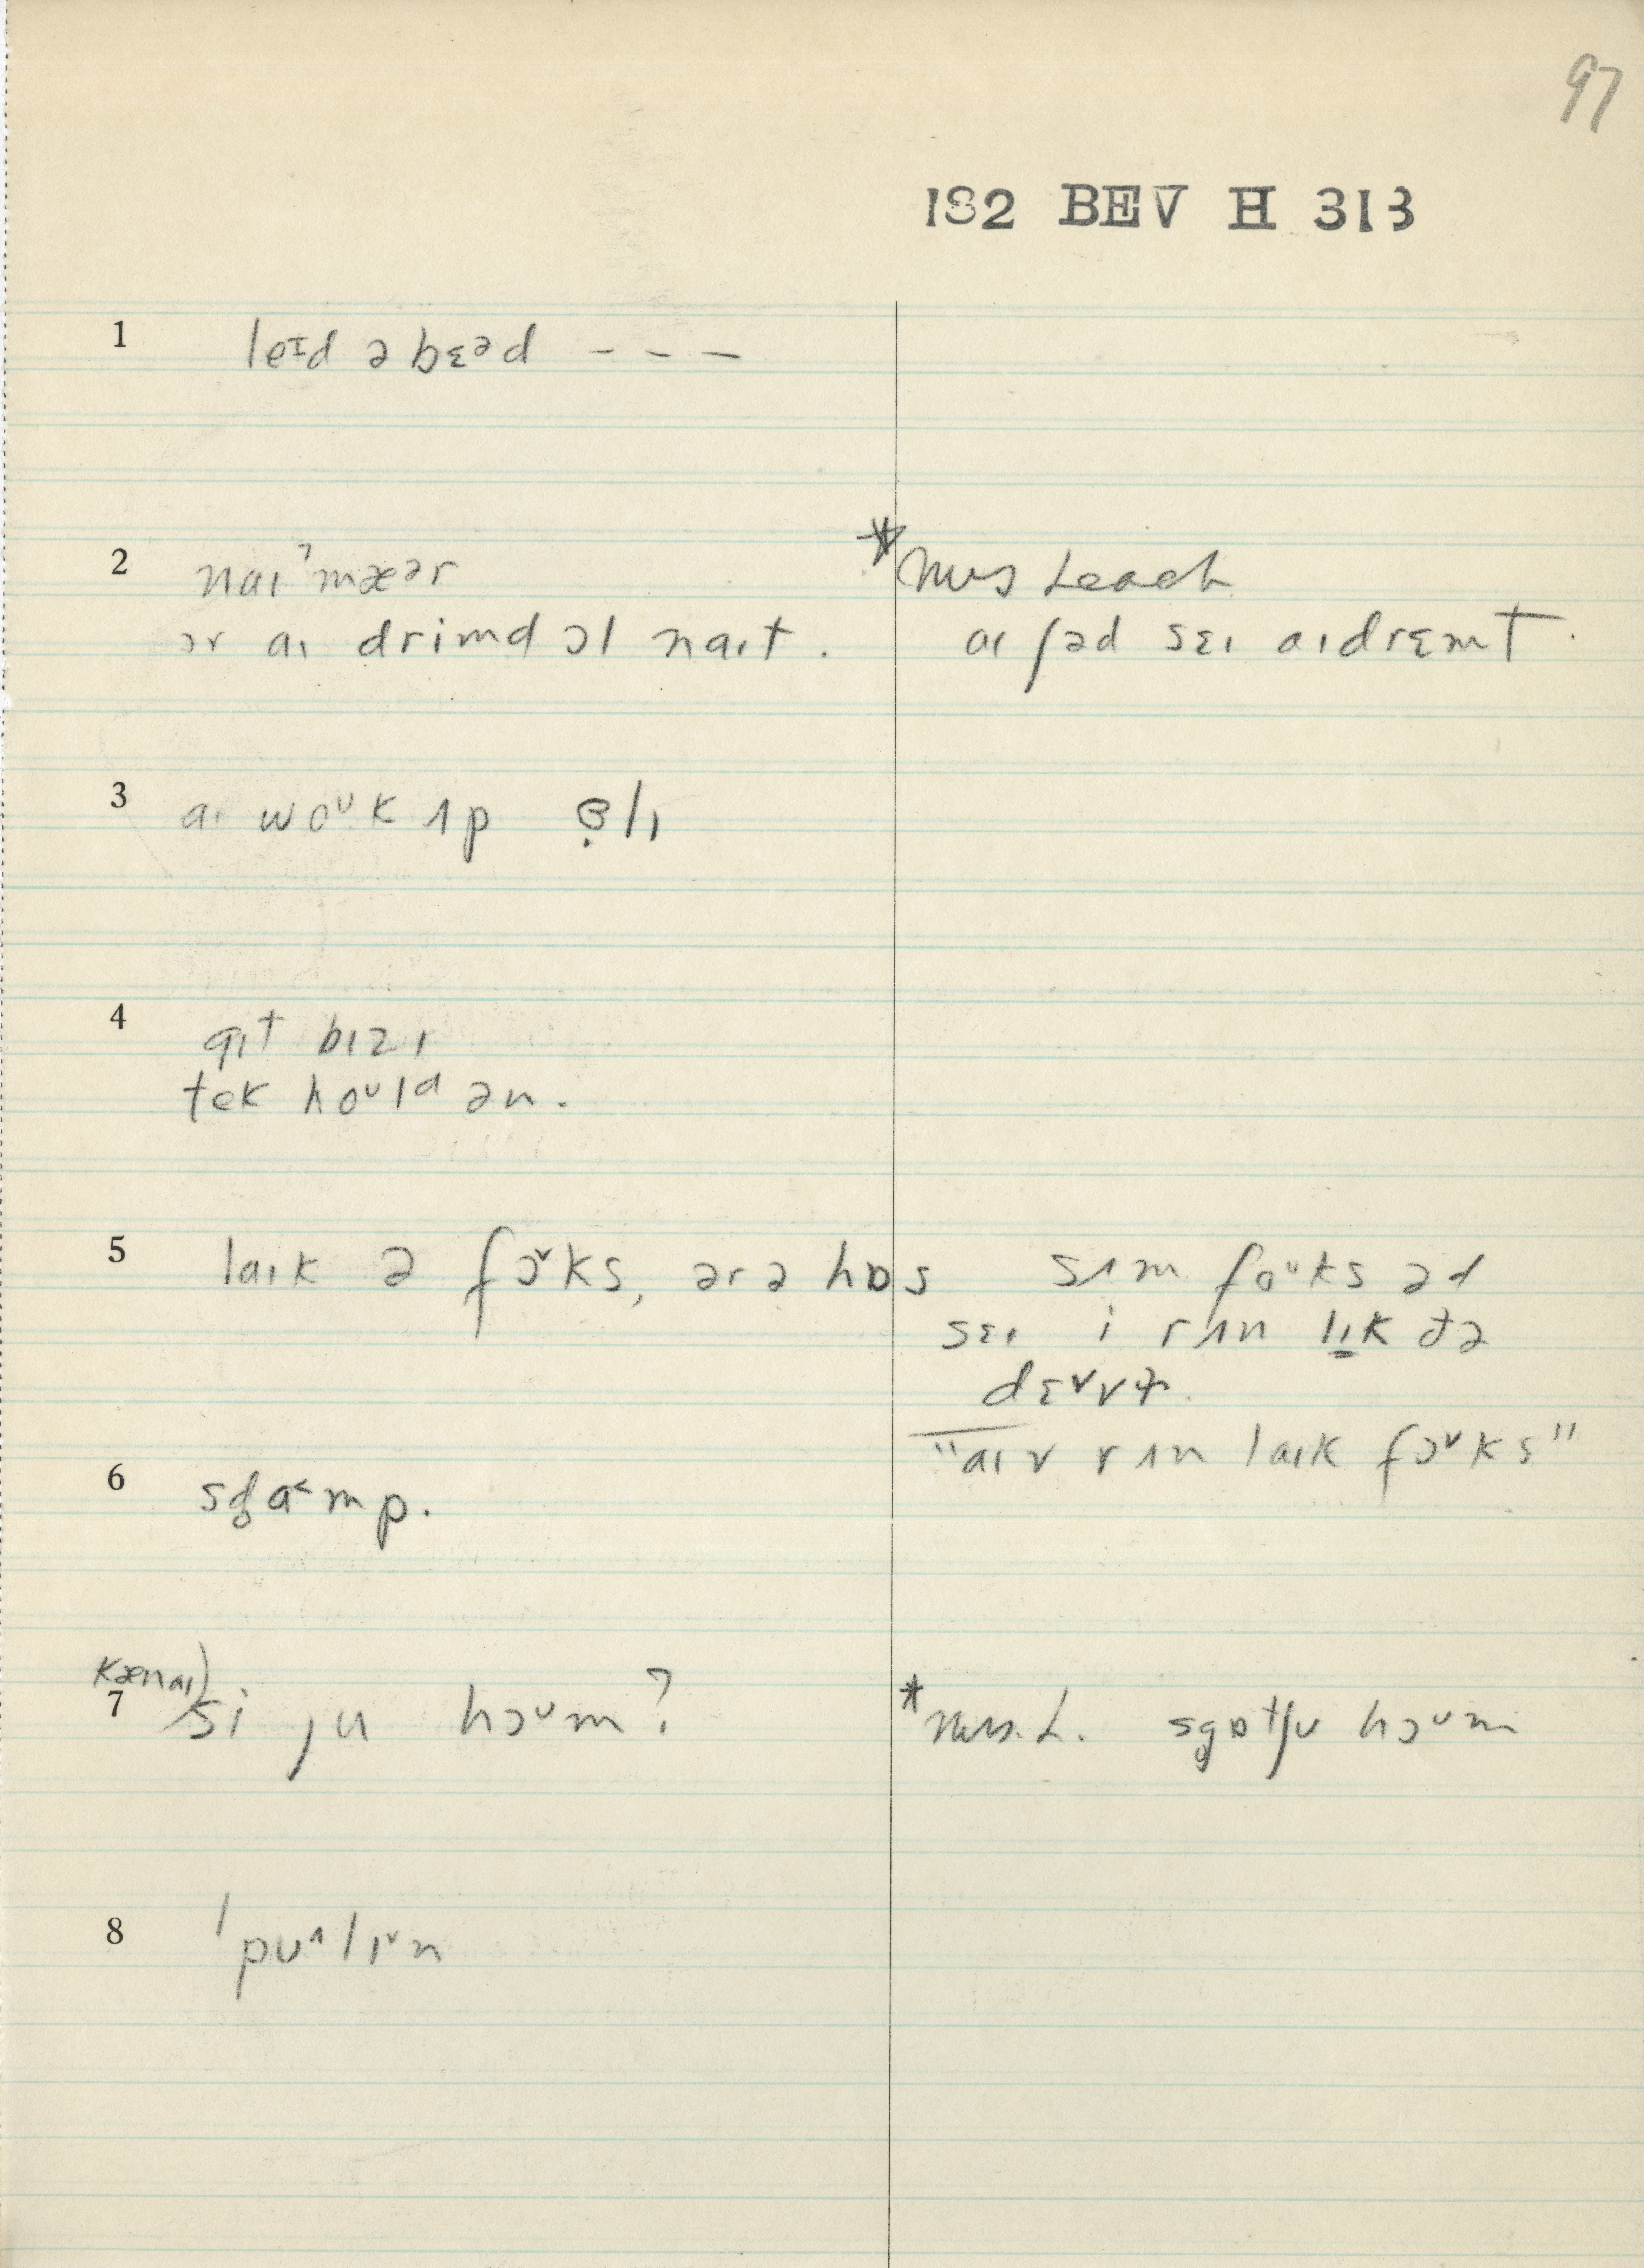 97
182 BEV H 313
1 leɪd ə bɛəd - - -
2 naɪˀmæər
ər aɪ drimd ɔl naɪt .
* Mrs Leach
aɪ ʃəd sɛɪ aɪ drɛmt .
3 aɪ woᴜk ʌp
4 gɪt bɪzɪ
tek hoᴜld ən .
5 laɪk ə fɔ˅ks, ər ə hɒs
sʌm foᴜks əd
sɛɪ i rʌn lɪk ðə
"aɪv rʌn laɪk fɔ˅ks"
6 sɡ̥a˂mp .
7 kænaɪ)
si ju hɔᴜm ?
* Mrs. L. sgɒtʃu hɔᴜm
8 ˈpu˄lɪ˅n